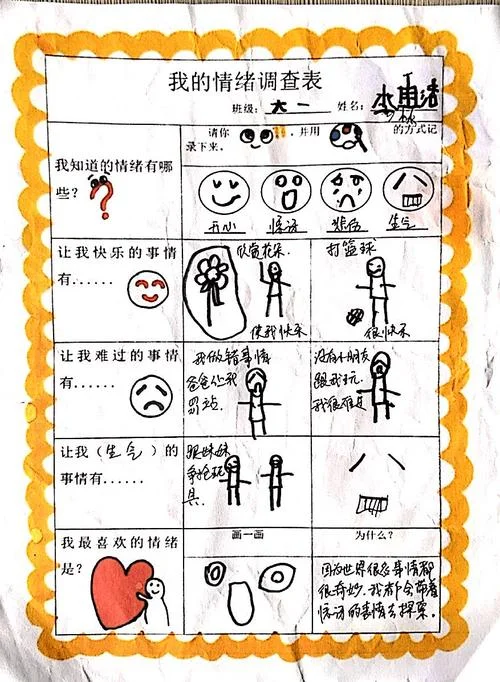 我的情绪调查表
班级：大一 姓名：
请你 ，并用 的方式记
录下来。
我知道的情绪有哪
些？
开心 惊讶 悲伤 生气
让我快乐的事情
有......
欣赏花朵
使我快乐
打篮球
很快乐
让我难过的事情
有......
我做错事情
爸爸让我
罚站.
没有小朋友
跟我玩.
我很难过
让我（生气）的
事情有......
跟妹妹
争抢玩
具.
我最喜欢的情绪
是？
画一画
为什么？
因为世界很多事情都
很奇妙.我都会带着
惊讶的表情去探索。